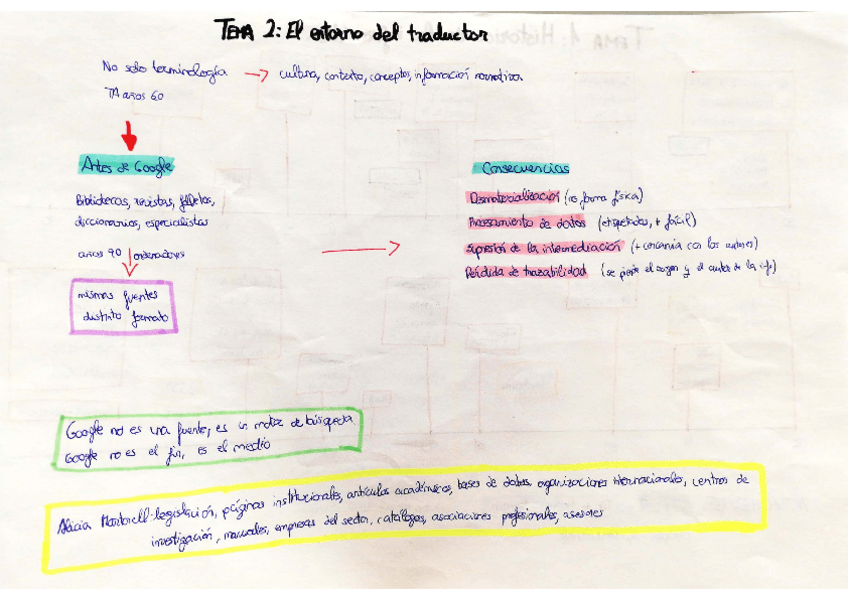 TEMA 2: El entorno del traductor
No solo terminología → cultura, contexto, conceptos, información normativa
TA años 60
Antes de Google
Bibliotecas, revistas, folletos,
diccionarios, especialistas
años 90 ordenadores
mismas fuentes
distinto formato
Consecuencias
Desmaterialización (no forma física)
Procesamiento de datos (etiquetados, + fácil)
Supresión de la intermediación (+ cercanía con los autores)
Pérdida de trazabilidad (se pierde el origen y el autor de la info)
Google no es una fuente, es un motor de búsqueda
Google no es el fin, es el medio
Alicia Martorell: legislación, páginas institucionales, artículos académicos, bases de datos, organizaciones internacionales, centros de
investigación, manuales, empresas del sector, catálogos, asociaciones profesionales, asesores